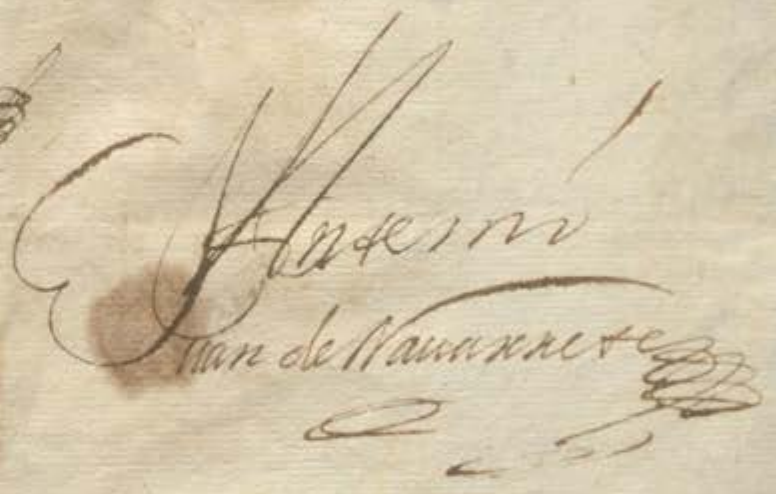 Ante mí
Juan de Navarrete